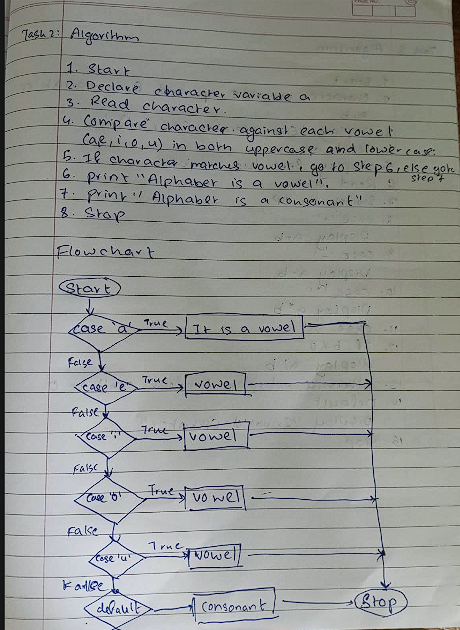 Task 2: Algorithm
1. Start
2. Declare character variable a
3. Read character.
4. Compare character against each vowel
(a,e,i,o,u) in both uppercase and lowercase.
5. If character matches vowel, go to step 6, else goto
step 7
6. print "Alphabet is a vowel".
7. print "Alphabet is a consonant"
8. Stop
Flowchart
Start
case 'a' True It is a vowel
False
case 'e' True vowel
False
case 'i' True vowel
False
case 'o' True vowel
False
case 'u' True vowel
False
default consonant Stop